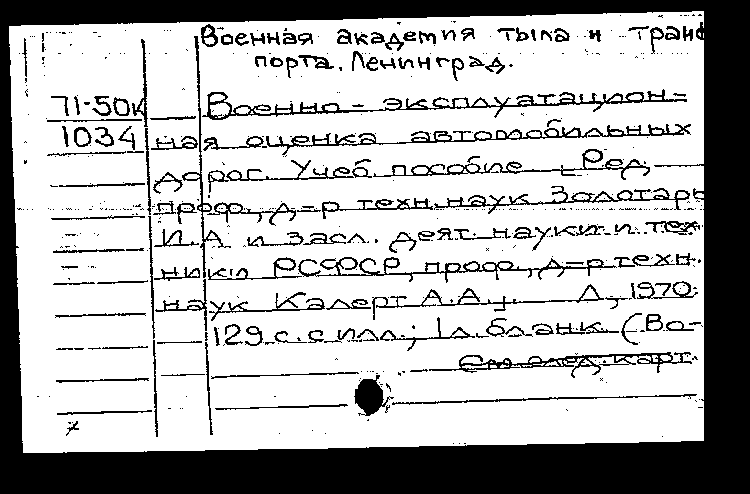 Военная академия тыла и транс
порта. Ленинград.
71-50к Военно-эксплуатацион-
1034 ная оценка автомобильных
дорог. Учеб. пособие [Ред.
проф., д-р техн. наук Золотарь
И.А и засл. деят. науки и тех
ники РСФСР, проф., д-р техн.
наук Калерт А.А.]. Л., 1970.
129 с. с илл.; 1 л. бланк. (Во-
См след. карт.